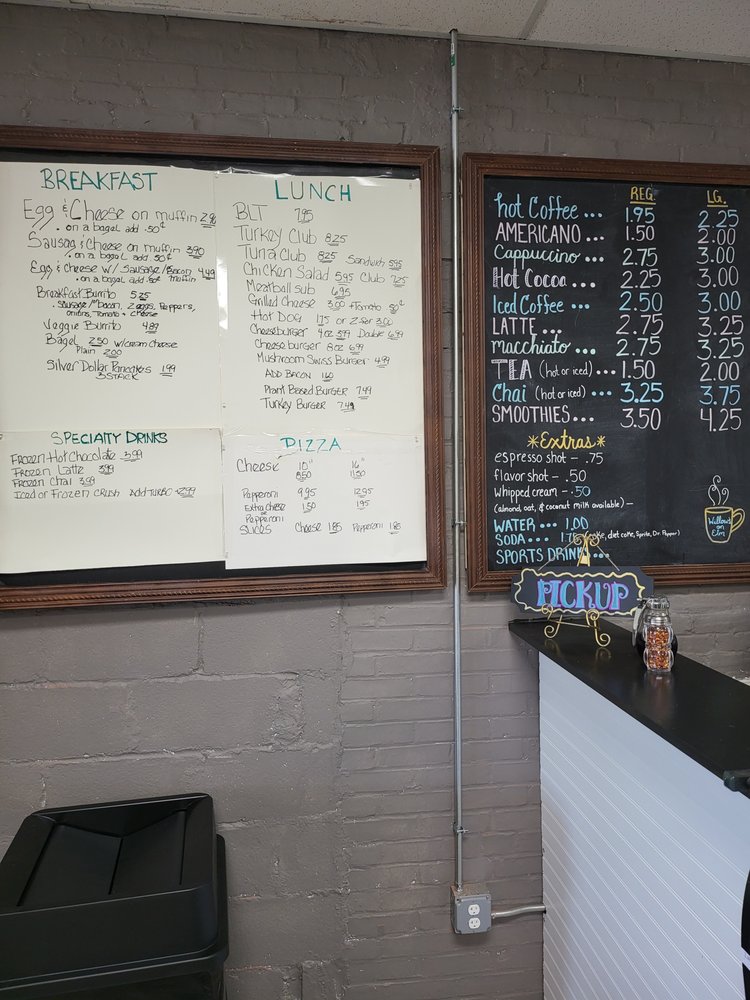 BREAKFAST
Egg & Cheese on muffin
• on a bagel add .50¢
Sausage & Cheese on muffin 3.90
• on a bagel add .50¢
Egg & Cheese w/ Sausage/Bacon 4.49
• on a bagel add .50¢ muffin
Breakfast Burrito 5.25
• Sausage/Bacon, 2 eggs, Peppers,
onions, Tomato + cheese
Veggie Burrito 4.89
Bagel 2.50 w/cream cheese
Plain 2.00
Silver Dollar Pancakes 1.99
3 STACK
SPECIALTY DRINKS
Frozen Hot Chocolate 3.99
Frozen Latte 3.99
Frozen Chai 3.99
Iced or Frozen Crush add TURBO 2.99
LUNCH
BLT 7.95
Turkey Club 8.25
Tuna Club 8.25 Sandwich 5.95
Chicken Salad 5.95 Club 7.25
Meatball sub 6.95
Grilled Cheese 3.00 + Tomato .50¢
Hot Dog 1.75 or 2 for 3.00
Cheeseburger 4oz 3.99 Double 6.99
Cheeseburger 8oz 6.99
Mushroom Swiss Burger 4.99
ADD BACON 1.60
Plant Based Burger 7.49
Turkey Burger 7.49
PIZZA
10" 16"
Cheese 8.50 11.50
Pepperoni 9.95 12.95
Extra Cheese 1.50 1.95
or
Pepperoni
SLICES Cheese 1.85 Pepperoni 1.85
REG. LG.
hot Coffee ... 1.95 2.25
AMERICANO ... 1.50 2.00
Cappuccino ... 2.75 3.00
Hot Cocoa ... 2.25 3.00
Iced Coffee ... 2.50 3.00
LATTE ... 2.75 3.25
macchiato ... 2.75 3.25
TEA (hot or iced) ... 1.50 2.00
Chai (hot or iced) ... 3.25 3.75
SMOOTHIES ... 3.50 4.25
*Extras*
espresso shot - .75
flavor shot - .50
whipped cream - .50
(almond, oat, & coconut milk available) -
WATER ... 1.00
SODA ... 1.75 (coke, diet coke, Sprite, Dr. Pepper)
SPORTS DRINK ...
Willows
on
Elm
PICKUP